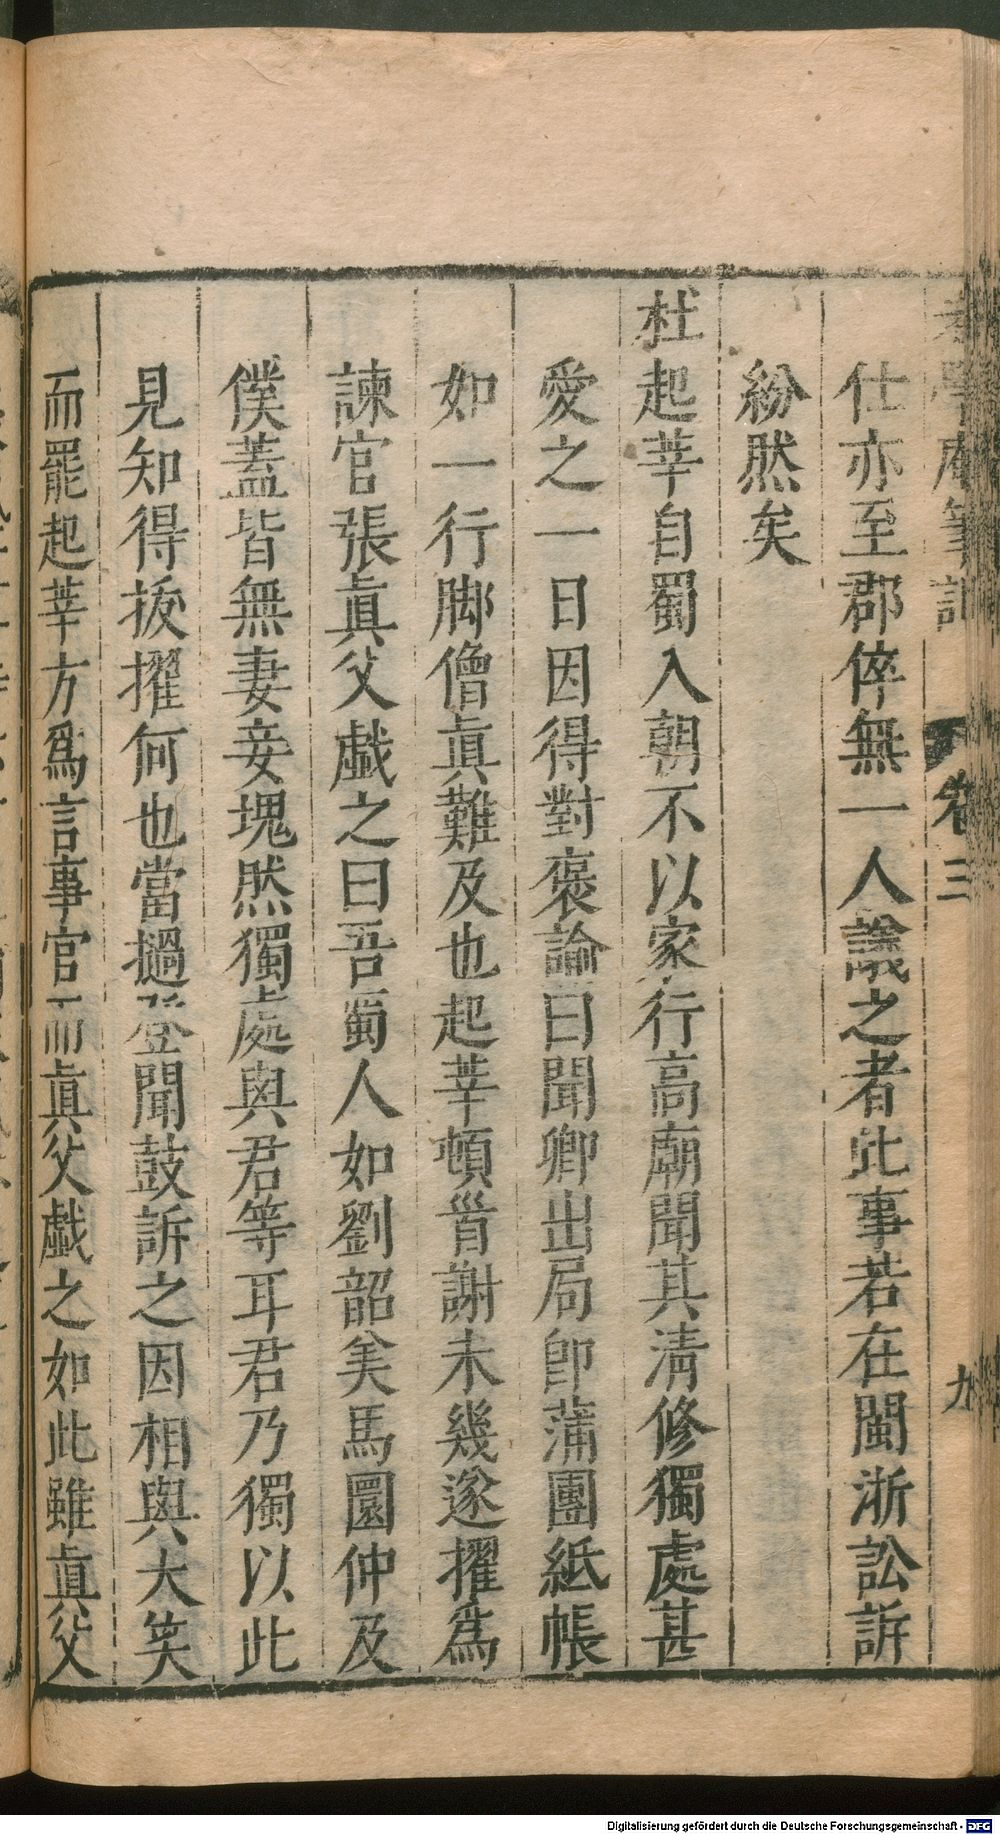 老學庵筆記 卷三 九
仕亦至郡倅無一人議之者此事若在閩浙訟訴
紛然矣
杜起莘自蜀入朝不以家行高廟聞其清修獨處甚
愛之一日因得對褒諭曰聞卿出局卽蒲團紙帳
如一行脚僧眞難及也起莘頓首謝未幾遂擢爲
諫官張眞父戲之曰吾蜀人如劉韶美馮圜仲及
僕蓋皆無妻妾塊然獨處與君等耳君乃獨以此
見知得拔擢何也當撾登聞鼓訴之因相與大笑
而罷起莘方爲言事官而眞父戲之如此雖眞父
Digitalisierung gefördert durch die Deutsche Forschungsgemeinschaft - DFG